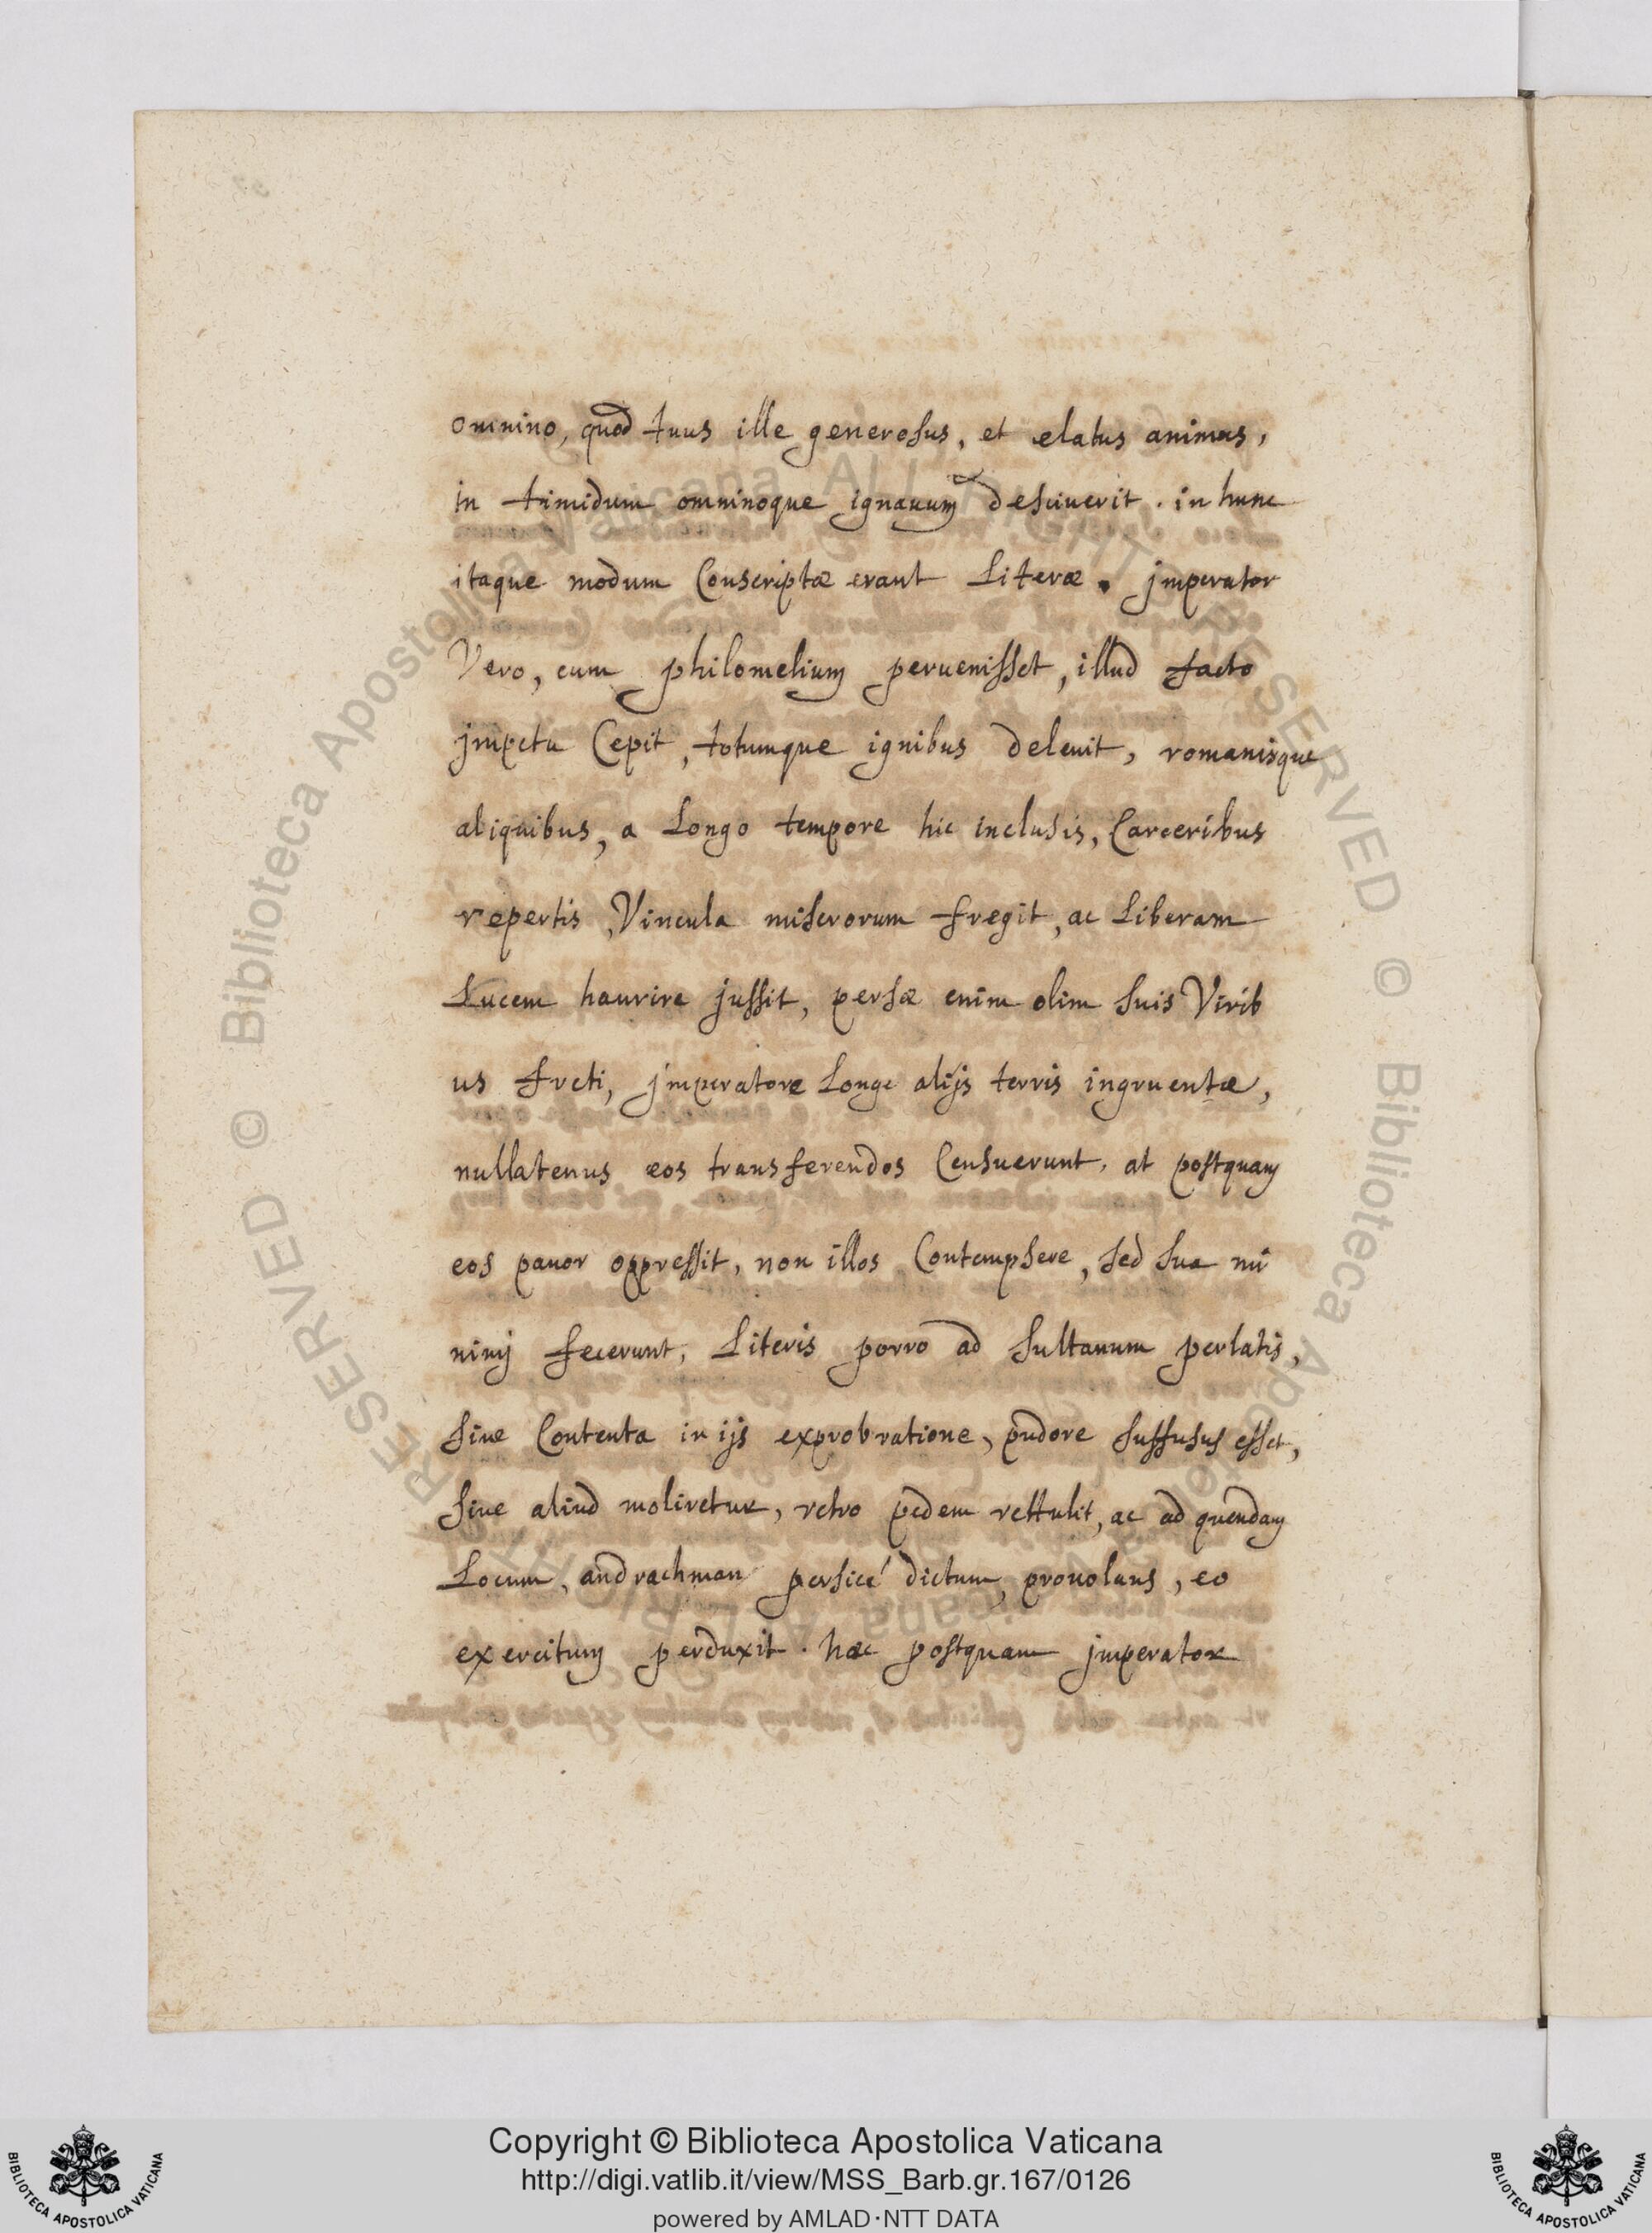 omnino, quod tuus ille generosus, et elatus animus,
in timidum omninoque ignauum desciuerit. in hunc
itaque modum Conscriptæ erant Literæ. jmperator
Vero, cum philomelium peruenisset, illud facto
jmpetu Cepit, totumque ignibus deleuit, romanisque
aliquibus, a Longo tempore hic inclusis, Carceribus
repertis, Vincula miserorum fregit, ac Liberam
Lucem haurire jussit, persæ enim olim suis Virib
us freti, jmperatore Longe alijs terris ingruente,
nullatenus eos transferendos Censuerunt, at postquam
eos pauor oppressit, non illos Contempsere, sed sua mi
nimj fecerunt, Literis porro ad sultanum perlatis,
siue Contenta in ijs exprobratione, pudore suffusus esset,
siue aliud moliretur, retro pedem rettulit, ac ad quendam
Locum, andrachman persicé dictum, prouolans, eo
exercitum perduxit. hæc postquam jmperator
© Biblioteca Apostolica Vaticana ALL RIGHTS RESERVED
© Biblioteca Apostolica Vaticana ALL RIGHTS RESERVED
Copyright © Biblioteca Apostolica Vaticana
http://digi.vatlib.it/view/MSS_Barb.gr.167/0126
powered by AMLAD·NTT DATA
BIBLIOTECA APOSTOLICA VATICANA
BIBLIOTECA APOSTOLICA VATICANA